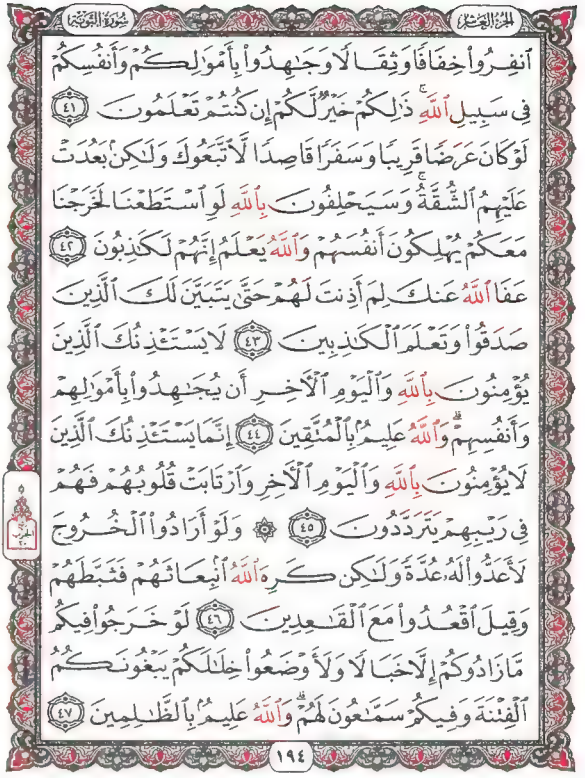 الجزء العاشر
سورة التوبة
ٱنفِرُوا۟ خِفَافًا وَثِقَالًا وَجَٰهِدُوا۟ بِأَمْوَٰلِكُمْ وَأَنفُسِكُمْ
فِى سَبِيلِ ٱللَّهِ ۚ ذَٰلِكُمْ خَيْرٌ لَّكُمْ إِن كُنتُمْ تَعْلَمُونَ ٤١
لَوْ كَانَ عَرَضًا قَرِيبًا وَسَفَرًا قَاصِدًا لَّٱتَّبَعُوكَ وَلَٰكِنۢ بَعُدَتْ
عَلَيْهِمُ ٱلشُّقَّةُ ۚ وَسَيَحْلِفُونَ بِٱللَّهِ لَوِ ٱسْتَطَعْنَا لَخَرَجْنَا
مَعَكُمْ يُهْلِكُونَ أَنفُسَهُمْ وَٱللَّهُ يَعْلَمُ إِنَّهُمْ لَكَٰذِبُونَ ٤٢
عَفَا ٱللَّهُ عَنكَ لِمَ أَذِنتَ لَهُمْ حَتَّىٰ يَتَبَيَّنَ لَكَ ٱلَّذِينَ
صَدَقُوا۟ وَتَعْلَمَ ٱلْكَٰذِبِينَ ٤٣ لَا يَسْتَـْٔذِنُكَ ٱلَّذِينَ
يُؤْمِنُونَ بِٱللَّهِ وَٱلْيَوْمِ ٱلْـَٔاخِرِ أَن يُجَٰهِدُوا۟ بِأَمْوَٰلِهِمْ
وَأَنفُسِهِمْ ۗ وَٱللَّهُ عَلِيمٌۢ بِٱلْمُتَّقِينَ ٤٤ إِنَّمَا يَسْتَـْٔذِنُكَ ٱلَّذِينَ
لَا يُؤْمِنُونَ بِٱللَّهِ وَٱلْيَوْمِ ٱلْـَٔاخِرِ وَٱرْتَابَتْ قُلُوبُهُمْ فَهُمْ
فِى رَيْبِهِمْ يَتَرَدَّدُونَ ٤٥ ۞ وَلَوْ أَرَادُوا۟ ٱلْخُرُوجَ
لَأَعَدُّوا۟ لَهُۥ عُدَّةً وَلَٰكِن كَرِهَ ٱللَّهُ ٱنۢبِعَاثَهُمْ فَثَبَّطَهُمْ
وَقِيلَ ٱقْعُدُوا۟ مَعَ ٱلْقَٰعِدِينَ ٤٦ لَوْ خَرَجُوا۟ فِيكُم
مَّا زَادُوكُمْ إِلَّا خَبَالًا وَلَأَوْضَعُوا۟ خِلَٰلَكُمْ يَبْغُونَكُمُ
ٱلْفِتْنَةَ وَفِيكُمْ سَمَّٰعُونَ لَهُمْ ۗ وَٱللَّهُ عَلِيمٌۢ بِٱلظَّٰلِمِينَ ٤٧
١٩٤
الحزب
٢٠